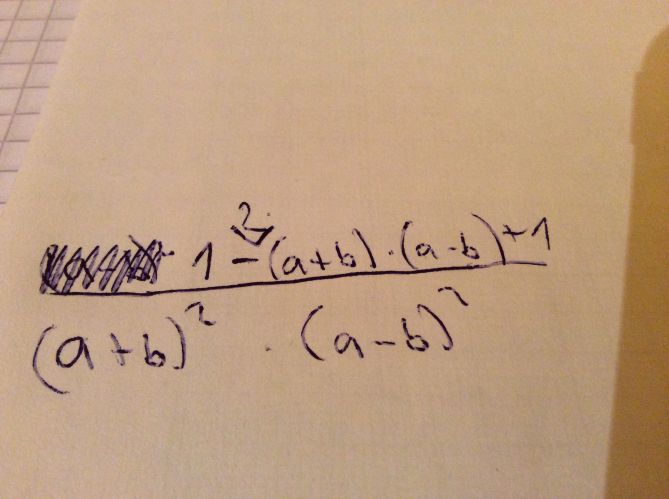 1 - 2·(a+b)·(a-b)+1
(a+b)² · (a-b)²